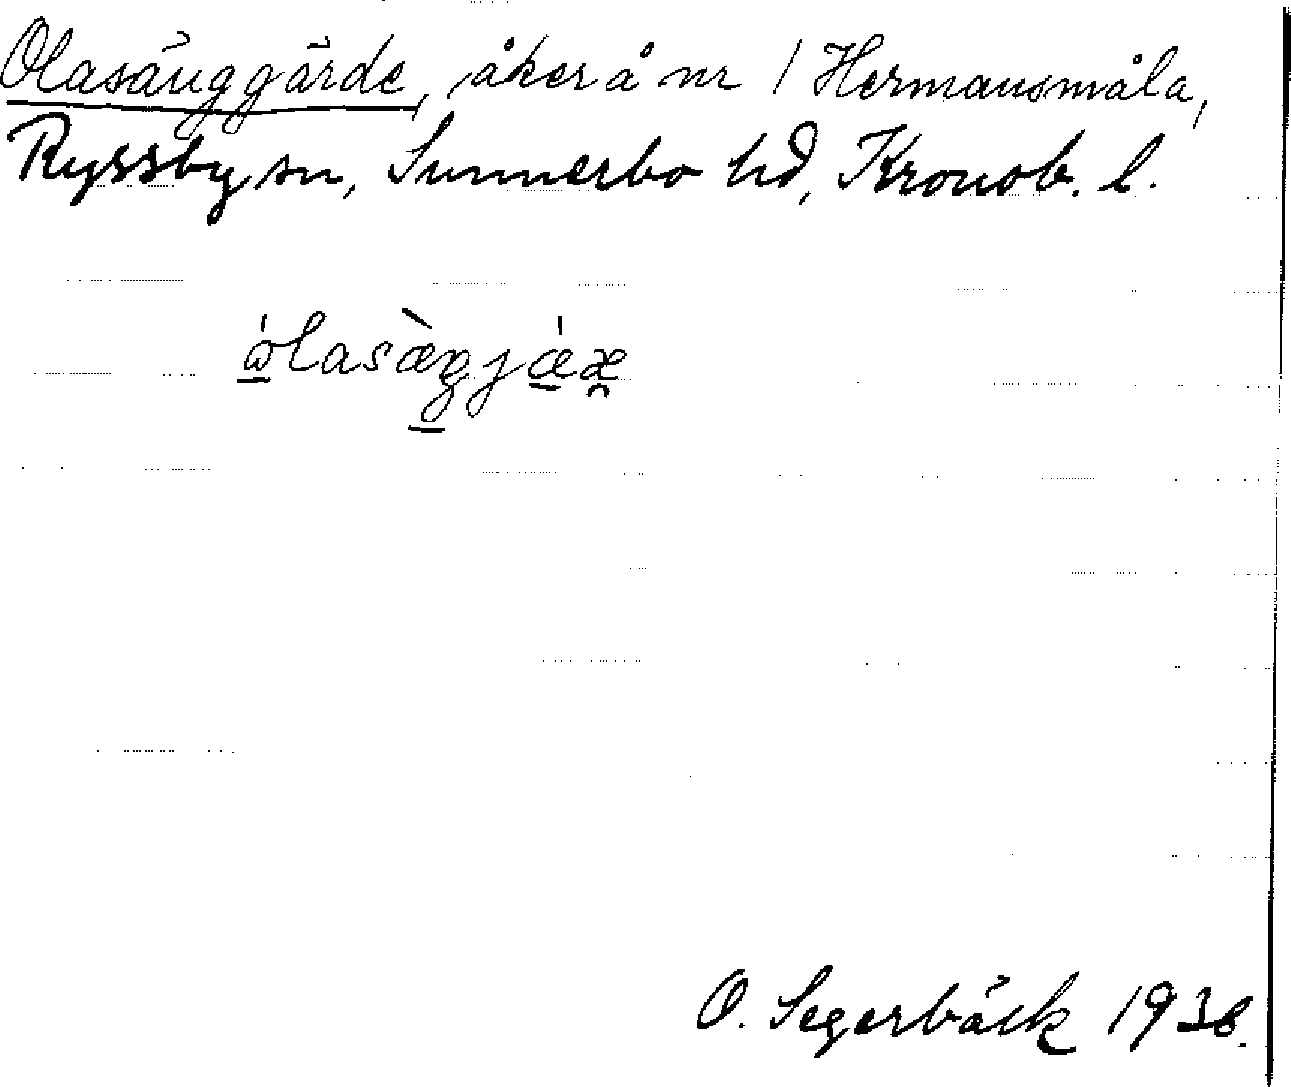 Olasänggärde, åker å nr 1 Hermansmåla,
Ryssby sn, Sunnerbo hd, Kronob. l.
O. Segerbäck 1938.